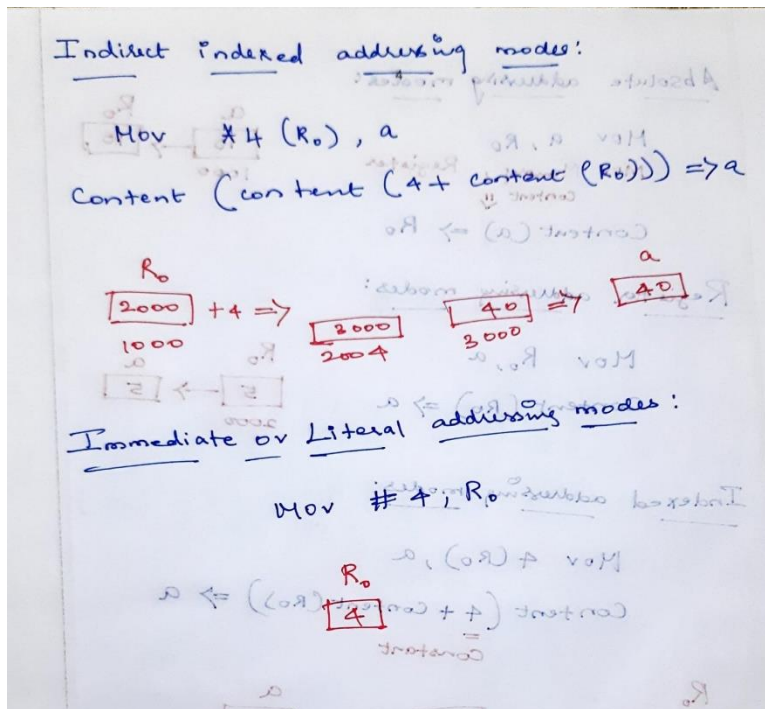 Indirect indexed addressing modes:
Mov *4 (R₀), a
Content (content (4+ content (R₀))) => a
R₀ a
2000 +4 => 3000 40 => 40
1000 2004 3000
Immediate or Literal addressing modes:
Mov # 4, R₀
R₀
4